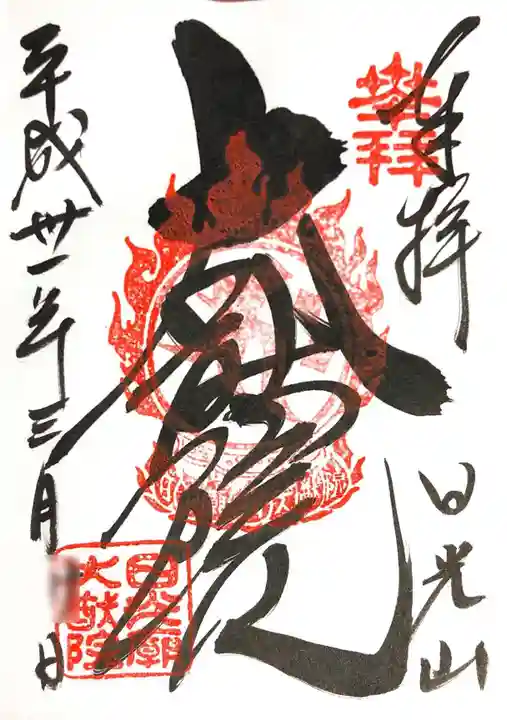 奉拝
日光山
大猷院
平成卅一年三月 日
登拝
日光廟
大猷院